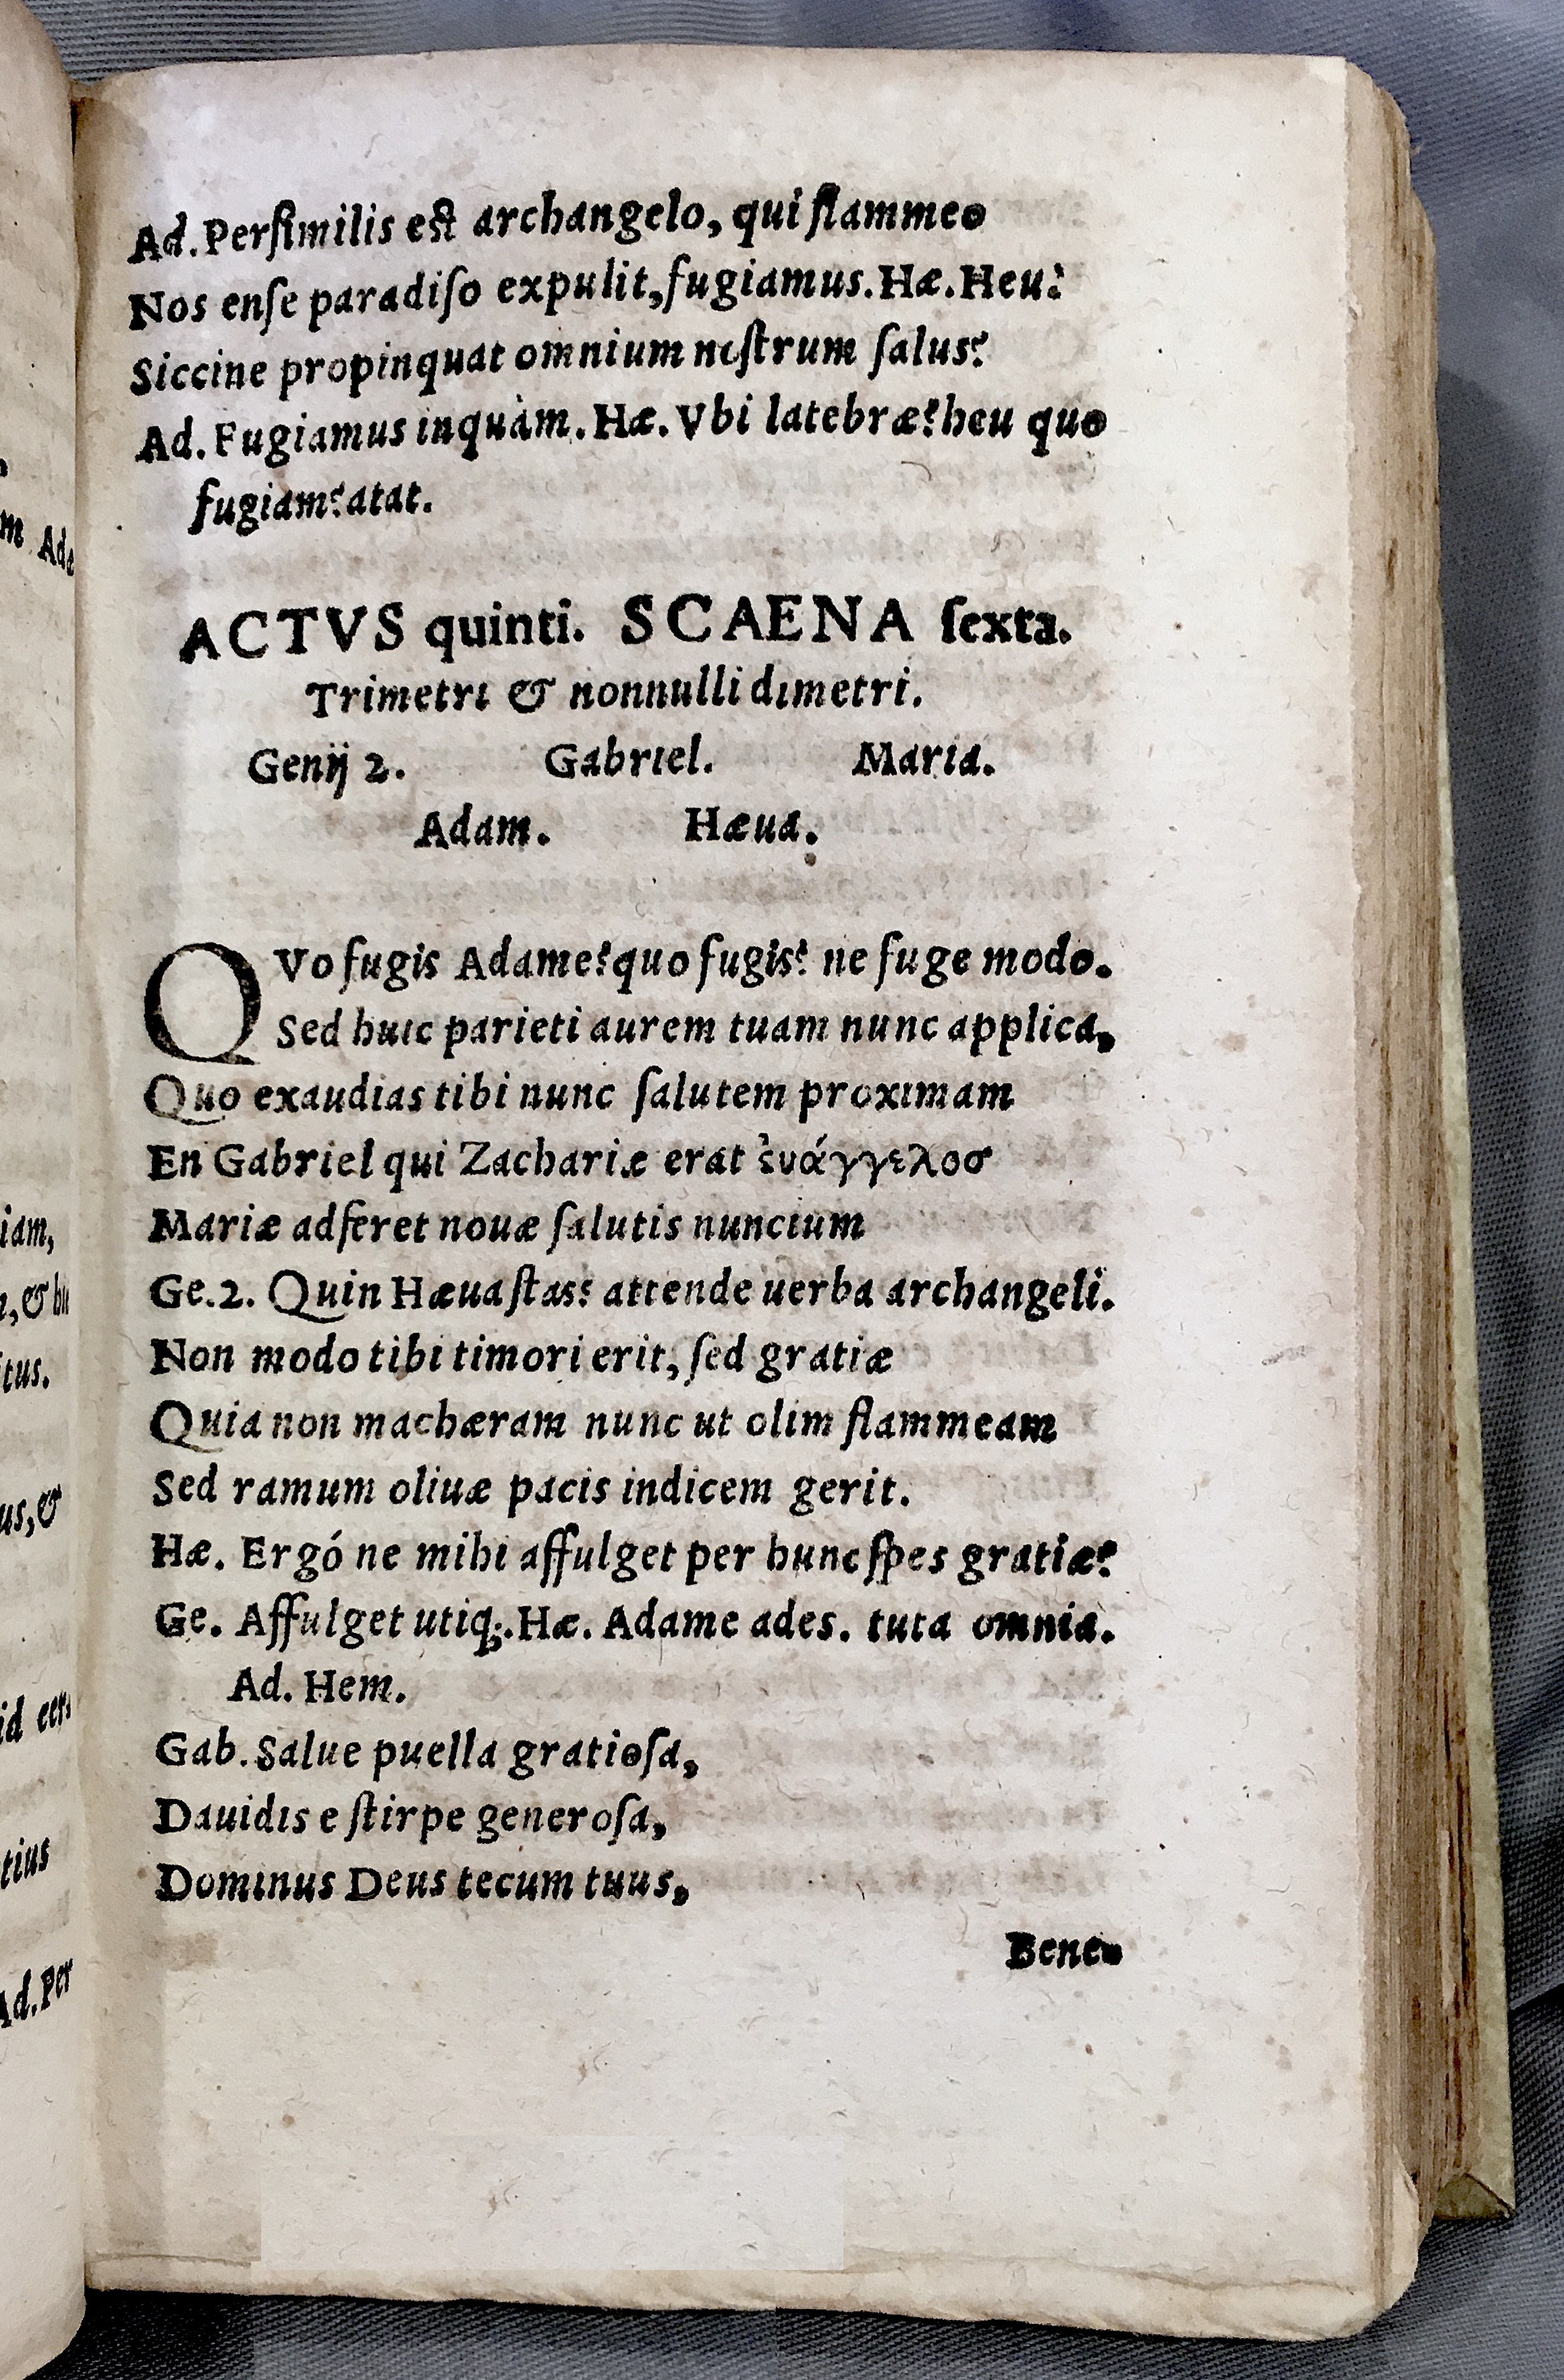 Ad. Perſimilis eſt archangelo, qui flammeo
Nos enſe paradiſo expulit, fugiamus. Hæ. Heu?
Siccine propinquat omnium noſtrum ſalus?
Ad. Fugiamus inquàm. Hæ. Vbi latebræ? heu quo
fugiam? atat.
ACTVS quinti. SCAENA ſexta.
Trimetri & nonnulli dimetri.
Genij 2. Gabriel. Maria.
Adam. Hæua.
QVo fugis Adame? quo fugis? ne fuge modo.
Sed huic parieti aurem tuam nunc applica,
Quo exaudias tibi nunc ſalutem proximam
En Gabriel qui Zachariæ erat ἐυάγγελοσ
Mariæ adferet nouæ ſalutis nuncium
Ge. 2. Quin Hæua ſtas? attende uerba archangeli.
Non modo tibi timori erit, ſed gratiæ
Quia non machæram nunc ut olim flammeam
Sed ramum oliuæ pacis indicem gerit.
Hæ. Ergó ne mihi affulget per hunc ſpes gratiæ?
Ge. Affulget utiq;. Hæ. Adame ades. tuta omnia.
Ad. Hem.
Gab. Salue puella gratioſa,
Dauidis e ſtirpe generoſa,
Dominus Deus tecum tuus,
Bene-
m Ada
iam,
&
tus.
us, &
id
tius
Ad. Per